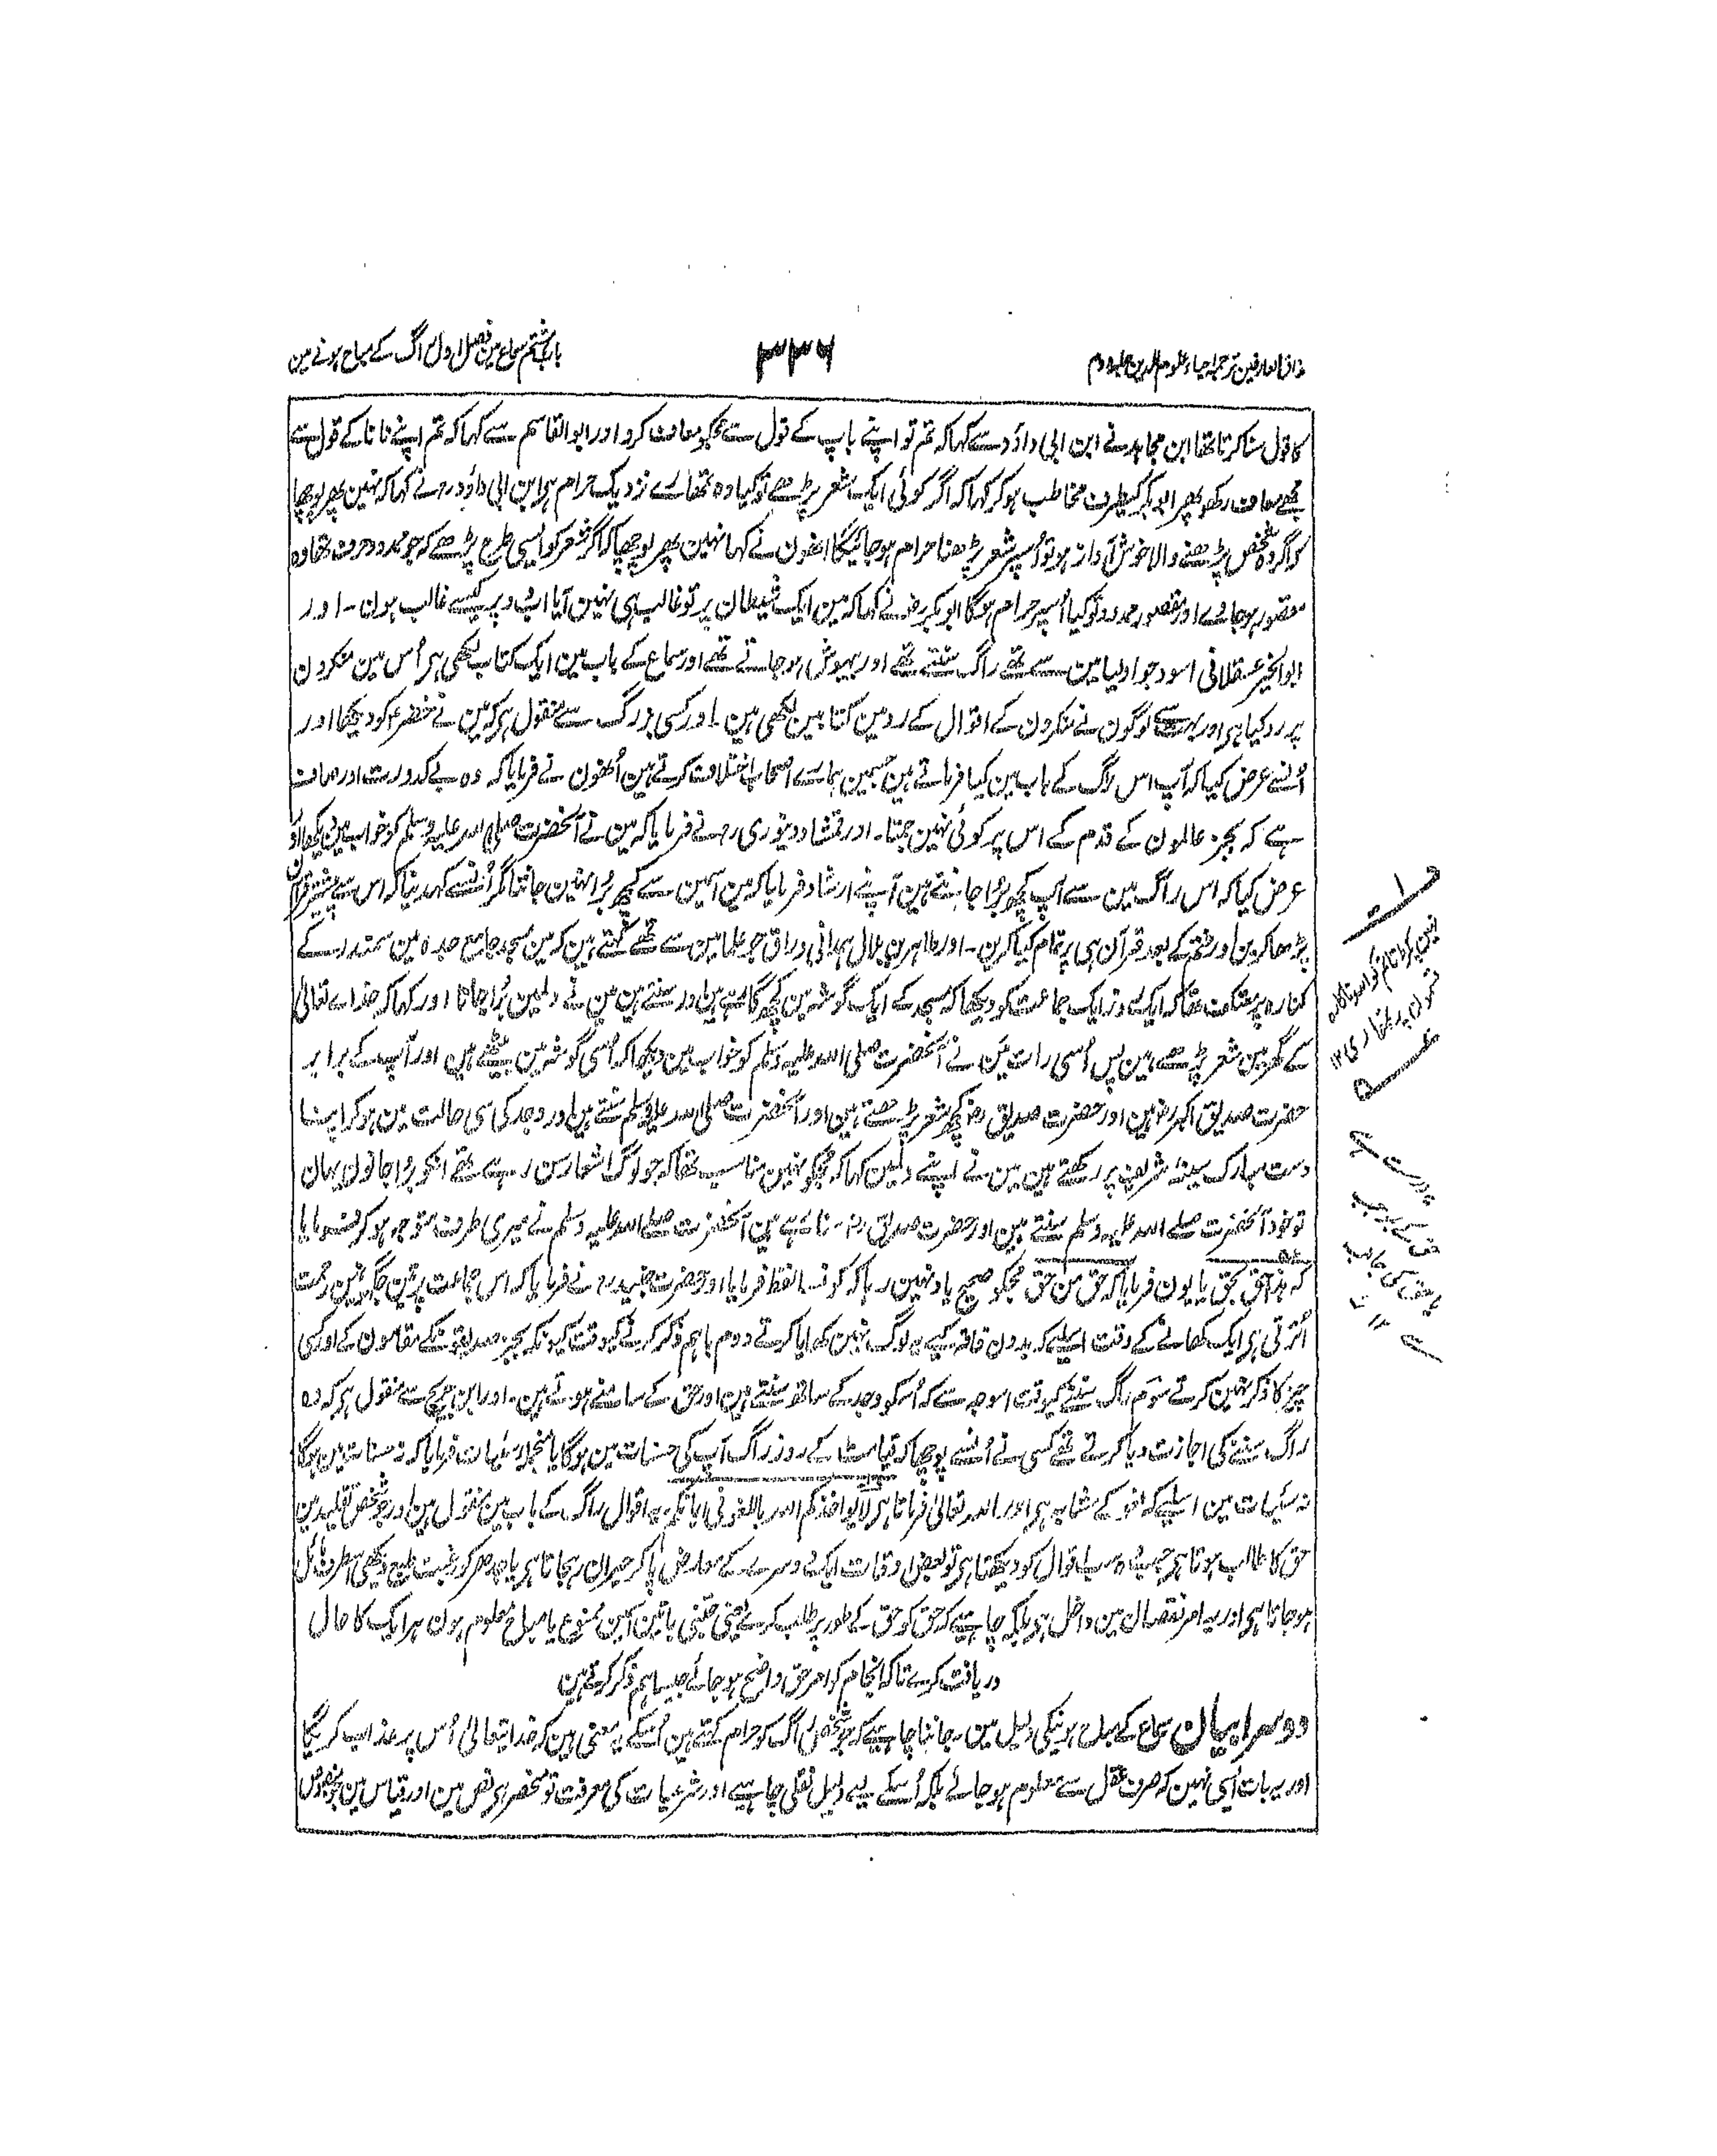 مذاق العارفین ترجمہ احیاء علوم الدین جلد دوم
۳۳۶
باب ہشتم سماع مین فصل اول راگ کے مباح ہونے مین
کا قول سنا کرتا تھا ابن مجاہد نے ابن ابی داؤد سے کہا کہ تم تو اپنے باپ کے قول سے مجکو معاف کرو اور ابو القاسم سے کہا کہ تم اپنے نانا کے قول سے
مجھے معاف رکھو پھر ابوبکر کیطرف مخاطب ہوکر کہا کہ اگر کوئی ایک شعر پڑھے تو کیا وہ تمھارے نزدیک حرام ہی ابن ابی داؤد رح نے کہا کہ نہین پھر پوچھا
کہ اگر وہ شخص پڑھنے والا خوش آواز ہو تو اُسپر شعر پڑھنا حرام ہوجائیگا انھون نے کہا نہین پھر پوچھا کہ اگر شعر کو اسی طرح پڑھے کہ جو ممدود حرف تھا وہ
مقصور ہوجاوے اور مقصور ممدود تو کیا اُسپر حرام ہوگا ابوبکر رض نے کہا کہ مین ایک شیطان پر تو غالب ہی نہین آیا اب دو پر کیسے غالب ہون ۔ اور
ابو الخیر عسقلانی اسود جو اولیا مین سے تھے راگ سنتے تھے اور بیہوش ہوجاتے تھے اور سماع کے باب مین ایک کتاب لکھی ہی اُس مین منکرون
پر رد کیا ہی اور بہت سے لوگون نے منکرون کے اقوال کے رد مین کتابین لکھی ہین ۔ اور کسی بزرگ سے منقول ہی کہ مین نے خضر ع کو دیکھا اور
اُنسے عرض کیا کہ آپ اس راگ کے باب مین کیا فرماتے ہین جسمین ہمارے اصحاب اختلاف کرتے ہین اُنھون نے فرمایا کہ وہ بے کدورت اور صاف
ہے کہ بجز عالمون کے قدم کے اس پر کوئی نہین جمتا ۔ اور ممشاد دینوری رح نے فرمایا کہ مین نے آنحضرت صلی اللہ علیہ وسلم کو خواب مین دیکھا اور
عرض کیا کہ اس راگ مین سے آپ کچھ بُرا جانتے ہین آپنے ارشاد فرمایا کہ مین اسمین سے کچھ بُرا نہین جانتا مگر اُنسے کہدینا کہ اس سے پیشتر قرآن
پڑھا کرین اور ختم کے بعد قرآن ہی پر تمام کیا کرین ۔ اور طاہر بن بلال ہمدانی وراق جو علما مین سے تھے کہتے ہین کہ مین مسجد جامع جدہ مین سمندر کے
کنارہ پر معتکف تھا کہ ایک روز ایک جماعت کو دیکھا کہ مسجد کے ایک گوشہ مین کچھ گاتے ہین اور سنتے ہین مین نے دلمین بُرا جانا اور کہا کہ خداے تعالیٰ
کے گھر مین شعر پڑھتے ہین پس اُسی رات مین نے آنحضرت صلی اللہ علیہ وسلم کو خواب مین دیکھا کہ اُسی گوشہ مین بیٹھے ہین اور آپ کے برابر
حضرت صدیق اکبر رض ہین اور حضرت صدیق رض کچھ شعر پڑھتے ہین اور آنحضرت صلی اللہ علیہ وسلم سنتے ہین اور وجد کی سی حالت مین ہوکر اپنا
دست مبارک سینۂ شریف پر رکھتے ہین مین نے اپنے دلمین کہا کہ مجکو نہین مناسب تھا کہ جو لوگ اشعار سن رہے تھے انکو بُرا جانون یہان
تو خود آنحضرت صلے اللہ علیہ وسلم سنتے ہین اور حضرت صدیق رض سناتے ہین آنحضرت صلے اللہ علیہ وسلم نے میری طرف متوجہ ہوکر فرمایا
کہ ہذا حق بحق یا یون فرمایا کہ حق من حق مجکو صحیح یاد نہین رہا کہ کونسا لفظ فرمایا اور حضرت جنید رح نے فرمایا کہ اس جماعت پر تین جگہ مین رحمت
اُترتی ہی ایک کھانے کے وقت اسلیے کہ بدون فاقہ کیے یہ لوگ نہین کھایا کرتے دوم باہم ذکر کرنے کیوقت کیونکہ بجز صدیقونکے مقامون کے اور کسی
چیز کا ذکر نہین کرتے سوم راگ سننے کیوقت اسوجہ سے کہ اُسکو وجد کے ساتھ سنتے ہین اور حق کے سامنے ہوتے ہین ۔ اور ابن جریج سے منقول ہی کہ وہ
راگ سننے کی اجازت دیا کرتے تھے کسی نے اُنسے پوچھا کہ قیامت کے روز راگ آپ کی حسنات مین ہوگا یا منجملہ سیئات فرمایا کہ نہ حسنات مین ہوگا
نہ سیئات مین اسلیے کہ لغو کے مشابہ ہی اور اللہ تعالیٰ فرماتا ہی لا یواخذکم اللہ باللغو فی ایمانکم یہ اقوال راگ کے باب مین منقول ہین اور جو شخص تقلید مین
حق کا طالب ہوتا ہی جب وہ اقوال کو دیکھتا ہی تو بعض اوقات ایک دوسرے کے معارض پاکر حیران رہجاتا ہی یا جدھر کو رغبت طبع دیکھی اسطرف مائل
ہوجاتا ہی اور یہ امر نقصان مین داخل ہی بلکہ چاہیے کہ حق کو حق کے طور پر طلب کرے یعنی جتنی باتین اسمین ممنوع یا مباح معلوم ہون ہر ایک کا حال
دریافت کرے تاکہ انجام کو امر حق واضح ہوجائے جیسا ہم ذکر کرتے ہین
دوسرا بیان سماع کے مباح ہونیکی دلیل مین ۔ جاننا چاہیے کہ جو شخص راگ کو حرام کہتے ہین اُسکے یہ معنی ہین کہ خدایتعالیٰ اُس پر عذاب کریگا
اور یہ بات ایسی نہین کہ صرف عقل سے معلوم ہوجائے بلکہ اُسکے لیے دلیل نقلی چاہیے اور شرعیات کی معرفت تو منحصر ہی نص مین اور قیاس مین جو منصوص
نہین پکڑتا تم کو اللہ ناکارہ
قسمون پر تمھاری ۱۲
یہ درست ہے